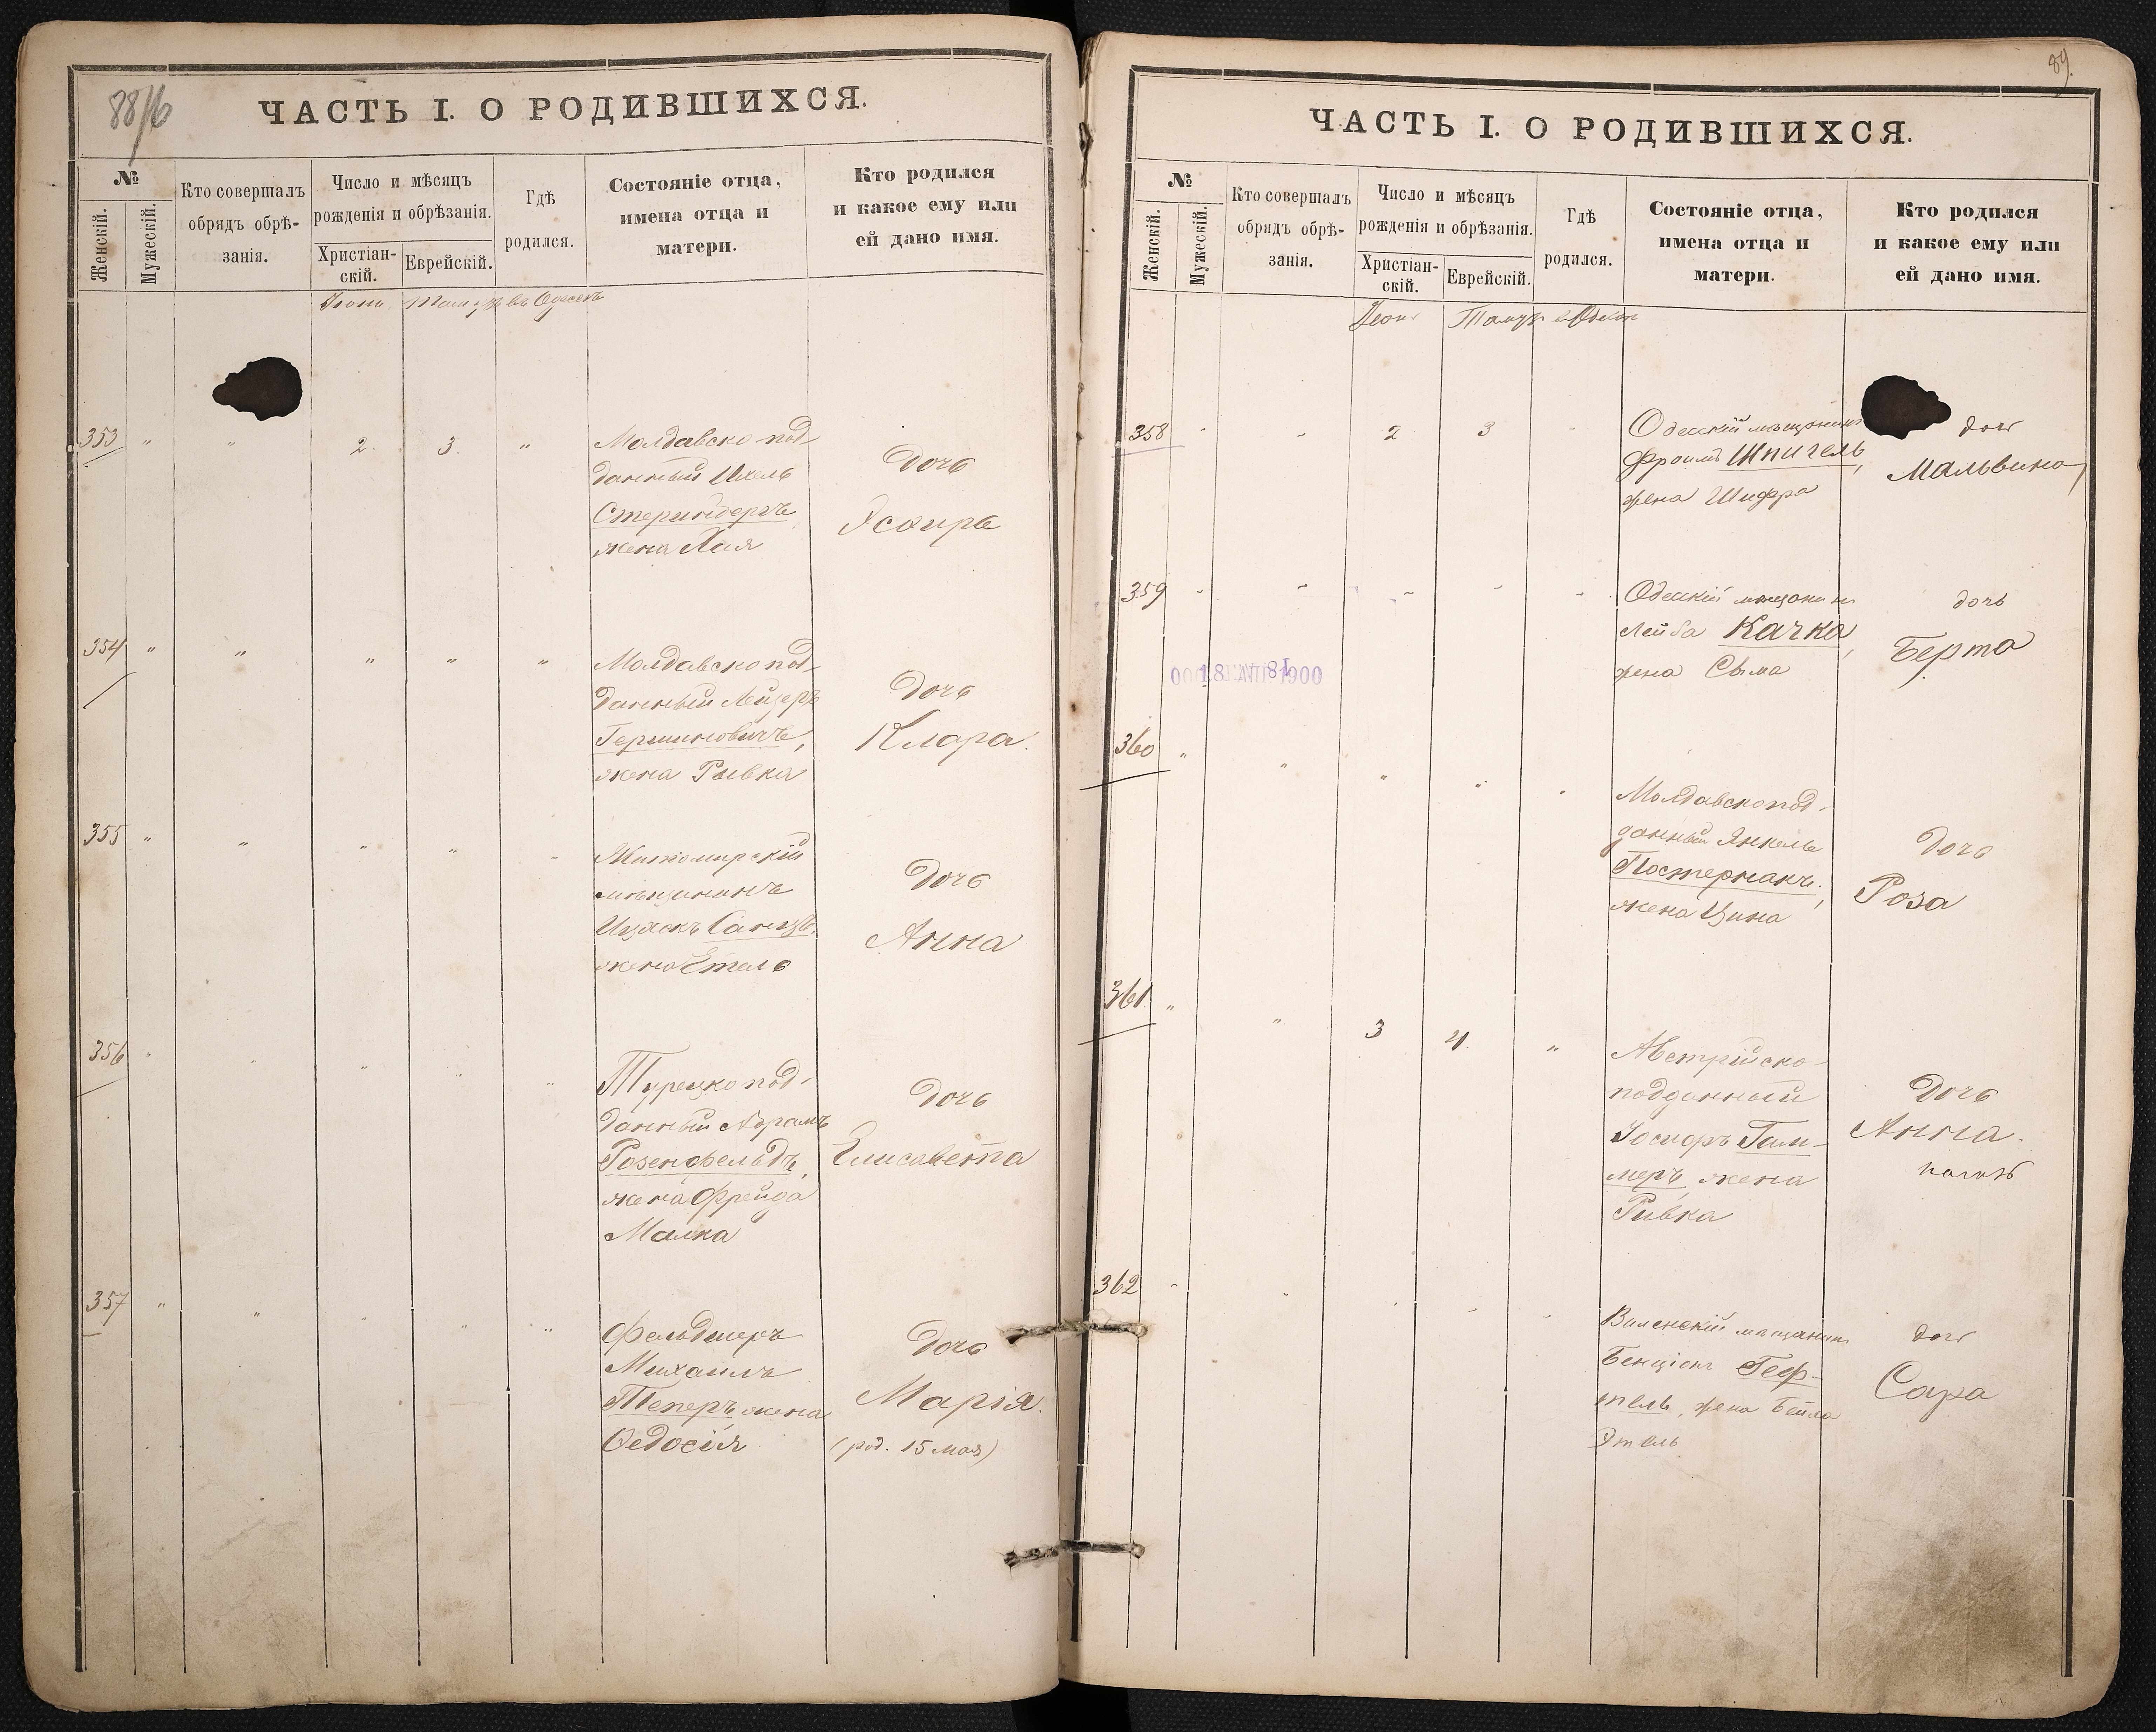 88/6
ЧАСТЬ I. О РОДИВШИХСЯ.
№
Женскій.
Мужескій.
Кто совершалъ
обрядъ обрѣ-
занія.
Число и мѣсяцъ
рожденія и обрѣзанія.
Христіан-
скій.
Еврейскій.
Гдѣ
родился.
Состояніе отца,
имена отца и
матери.
Кто родился
и какое ему или
ей дано имя.
въ Одессѣ
353 " " 2. 3. "
Молдавско-под-
данный Ихель
жена Хая
Дочь
354 " " " " "
Молдавскопод-
данный Лейзеръ
Гершковичъ,
жена Рывка
Дочь
Клара.
355 " " " " "
Житомирскій
мѣщанинъ
жена Етель
Дочь
Анна
356 " " " " "
Турецкопод-
данный Абрамъ
Розенфельдъ,
жена Фрейда
Малка
Дочь
Елисавета
357 " " " " "
Фельдшеръ
Михаилъ
Теперъ, жена
Ѳедосія
Дочь
Марія.
(род. 15 мая)
89.
ЧАСТЬ I. О РОДИВШИХСЯ.
№
Женскій.
Мужескій.
Кто совершалъ
обрядъ обрѣ-
занія.
Число и мѣсяцъ
рожденія и обрѣзанія.
Христіан-
скій.
Еврейскій.
Гдѣ
родился.
Состояніе отца,
имена отца и
матери.
Кто родился
и какое ему или
ей дано имя.
358 " " 2 3 "
Одесскій мѣщанинъ
Фроимъ Шпигель,
жена Шифра
дочь
Мальвина
359 " " " " "
Одесскій мѣщанинъ
Лейба Качка,
жена Сыма
дочь
Берта
360 " " " " "
Молдавскопод-
данный Янкель
Постернакъ,
жена Цина
Дочь
Роза
361. " " 3 4. "
Австрійско-
подданный
Іосифъ Гим-
меръ, жена
Ривка
Дочь
Анна.
362 " " " " "
Виленскій мѣщанинъ
Бенціонъ Геф-
тель, жена Бейла
Этель
дочь
Сара